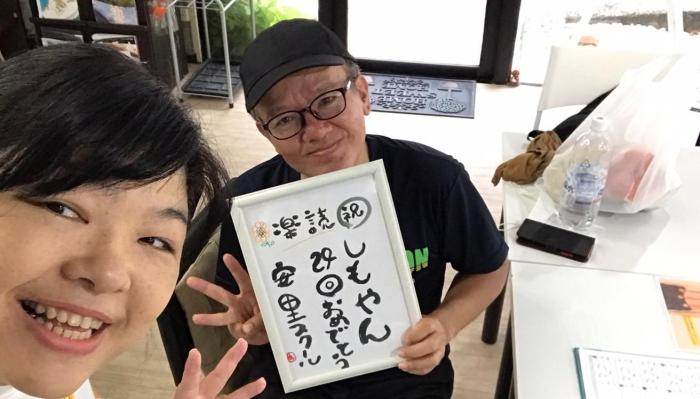 祝
楽読
しもやん
24回おめでとう
安里スクール